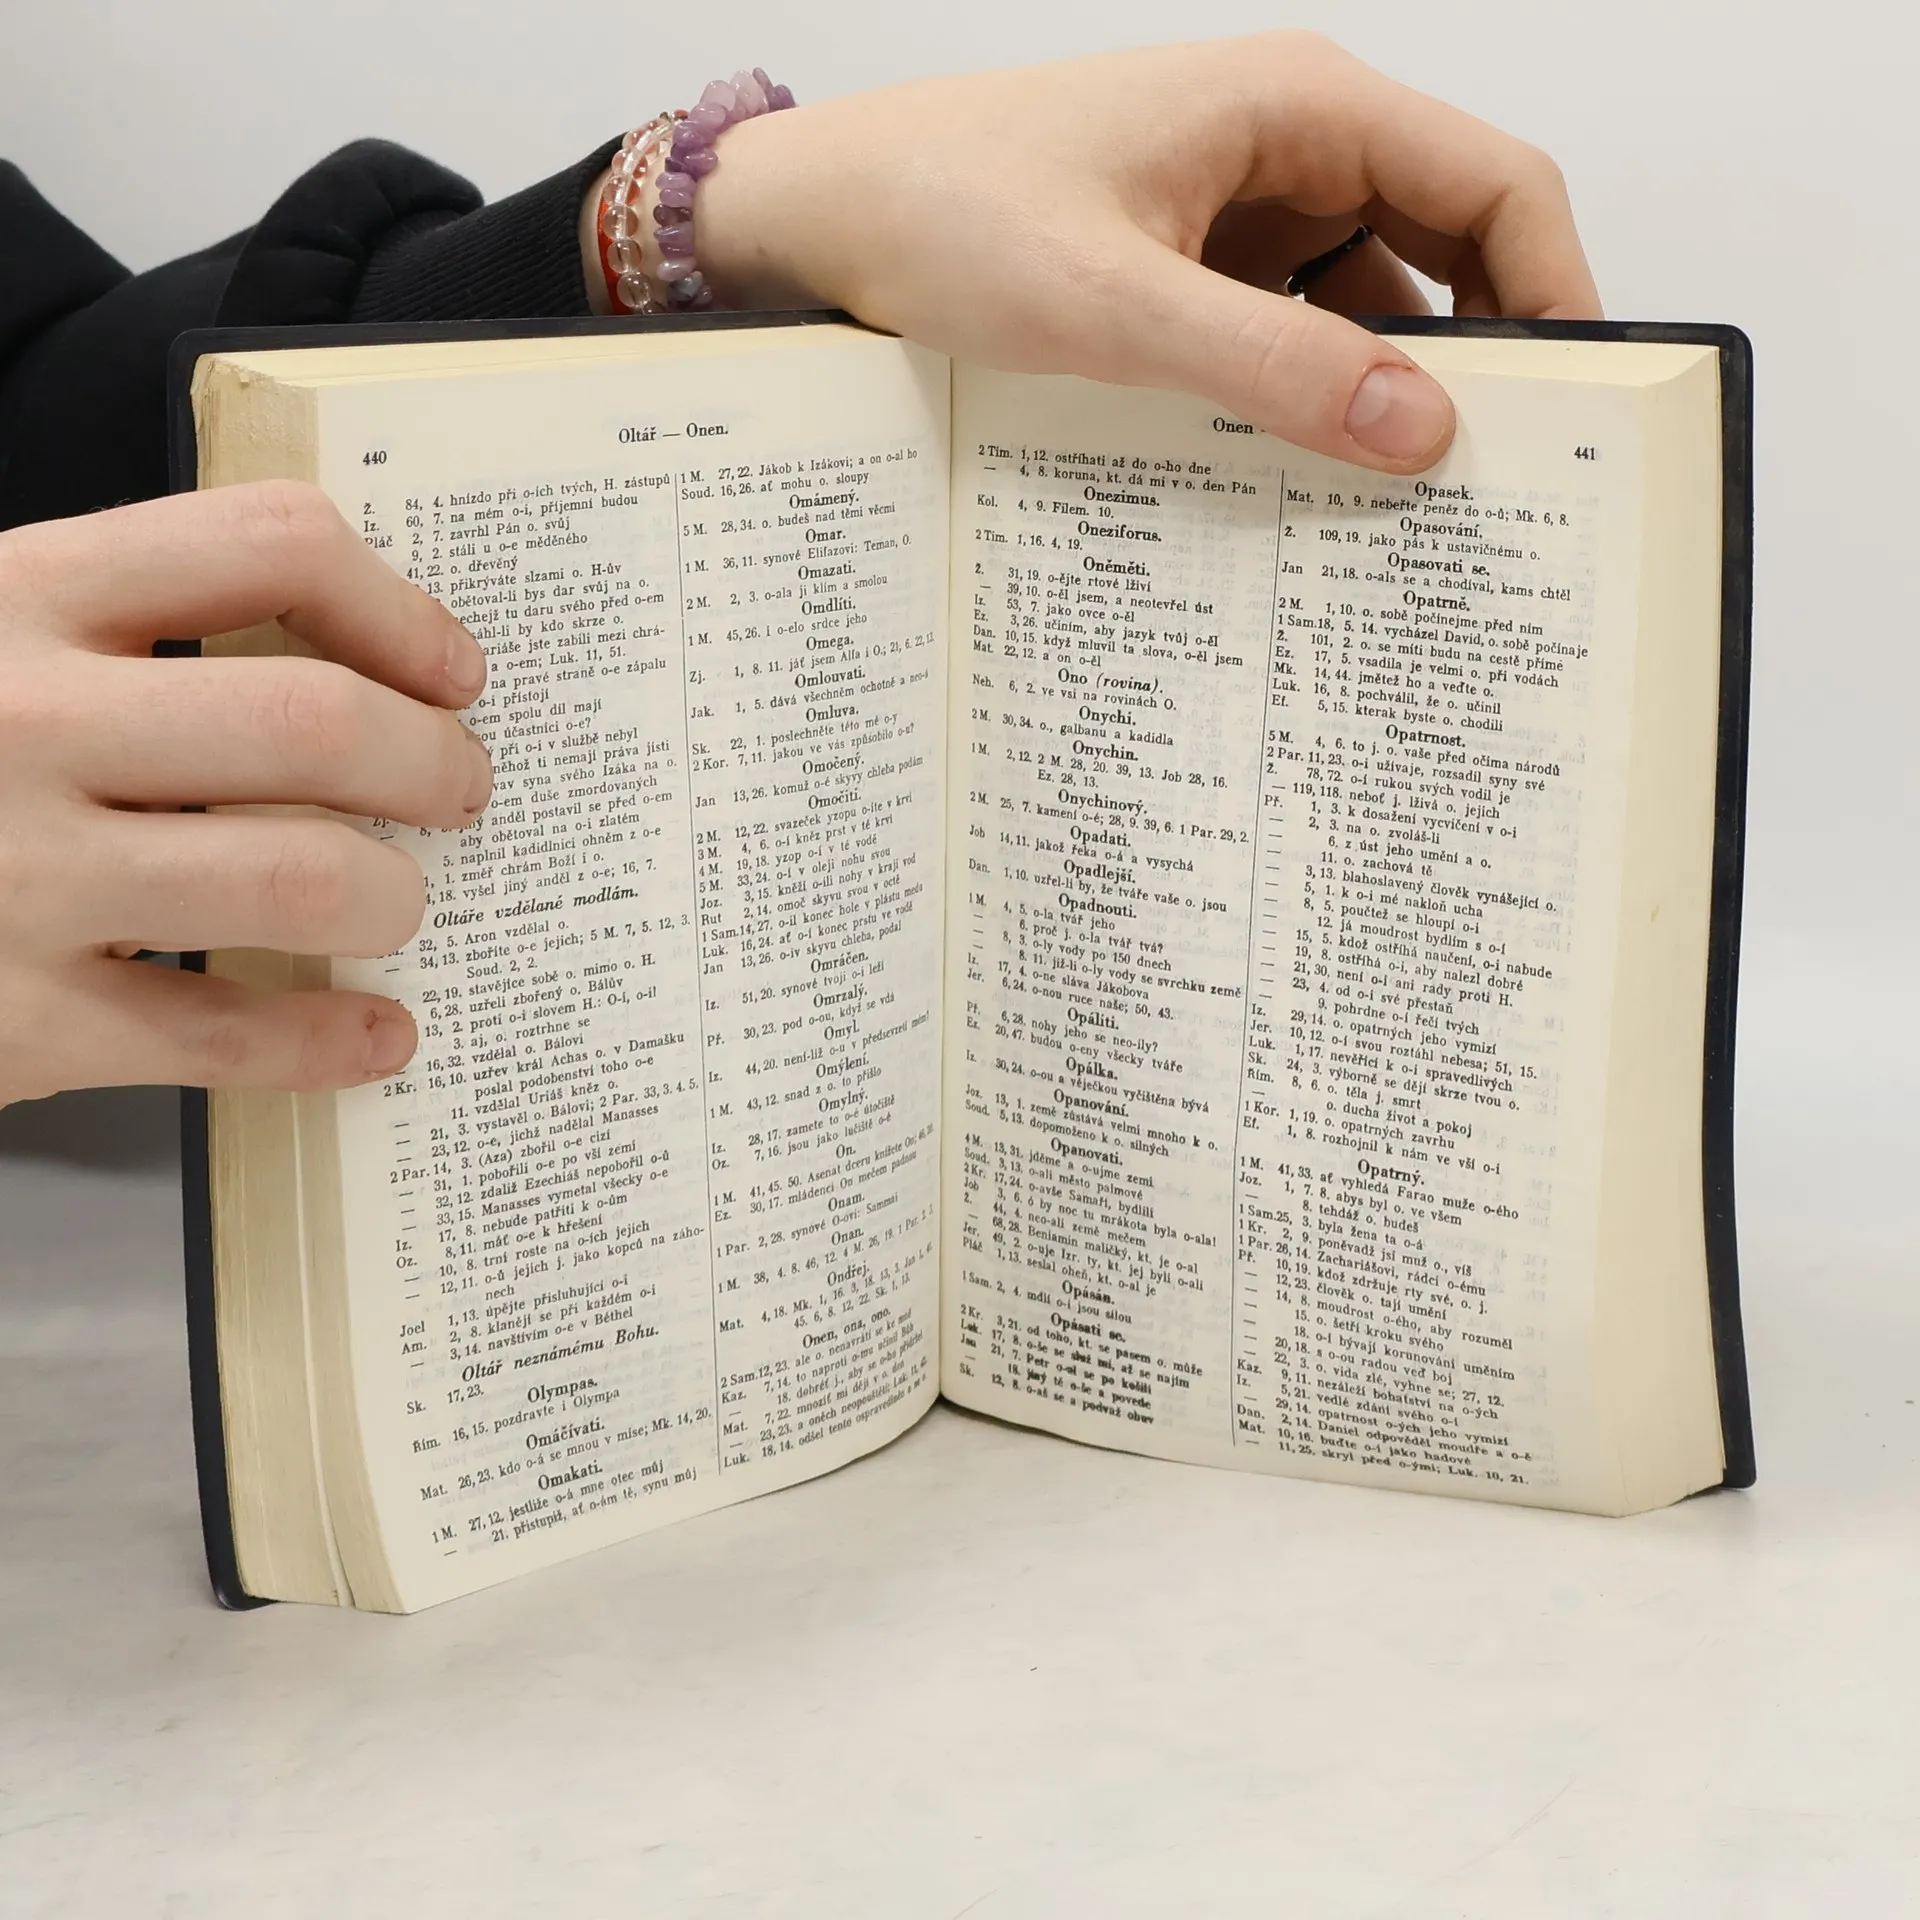 440
Oltář — Onen.
Ž. 84, 4. hnízdo při o-ích tvých, H. zástupů
Iz. 60, 7. na mém o-i, příjemni budou
Pláč 2, 7. zavrhl Pán o. svůj
9, 2. stáli u o-e měděného
41, 22. o. dřevěný
13. přikrýváte slzami o. H-ův
obětoval-li bys dar svůj na o.
nechejž tu daru svého před o-em
sáhl-li by kdo skrze o.
ariáše jste zabili mezi chrá-
a o-em; Luk. 11, 51.
na pravé straně o-e zápalu
o-i přístojí
o-em spolu díl mají
sou účastníci o-e?
při o-i v službě nebyl
něhož ti nemají práva jísti
vav syna svého Izáka na o.
o-em duše zmordovaných
jiný anděl postavil se před o-em
aby obětoval na o-i zlatém
5. naplnil kadidlnici ohněm z o-e
1, 1. změř chrám Boží i o.
4, 18. vyšel jiný anděl z o-e; 16, 7.
Oltáře vzdělané modlám.
32, 5. Aron vzdělal o.
— 34, 13. zboříte o-e jejich; 5 M. 7, 5. 12, 3.
Soud. 2, 2.
22, 19. stavějíce sobě o. mimo o. H.
6, 28. uzřeli zbořený o. Bálův
13, 2. proti o-i slovem H.: O-i, o-i!
3. aj, o. roztrhne se
— 16, 32. vzdělal o. Bálovi
2 Kr. 16, 10. uzřev král Achas o. v Damašku
poslal podobenství toho o-e
— 11. vzdělal Uriáš kněz o.
— 21, 3. vystavěl o. Bálovi; 2 Par. 33, 3. 4. 5.
— 23, 12. o-e, jichž nadělal Manasses
2 Par. 14, 3. (Aza) zbořil o-e cizí
— 31, 1. pobořili o-e po vší zemi
— 32, 12. zdaliž Ezechiáš nepobořil o-ů
— 33, 15. Manasses vymetal všecky o-e
Iz. 17, 8. nebude patřiti k o-ům
Oz. 8, 11. máť o-e k hřešení
— 10, 8. trní roste na o-ích jejich
— 12, 11. o-ů jejich j. jako kopců na záho-
nech
Joel 1, 13. úpějte přisluhující o-i
Am. 2, 8. klanějí se při každém o-i
— 3, 14. navštívím o-e v Béthel
Oltář neznámému Bohu.
Sk. 17, 23.
Olympas.
Řím. 16, 15. pozdravte i Olympa
Omáčívati.
Mat. 26, 23. kdo o-á se mnou v míse; Mk. 14, 20.
Omakati.
1 M. 27, 12. jestliže o-á mne otec můj
— 21. přistupiž, ať o-ám tě, synu můj
1 M. 27, 22. Jákob k Izákovi; a on o-al ho
Soud. 16, 26. ať mohu o. sloupy
Omámený.
5 M. 28, 34. o. budeš nad těmi věcmi
Omar.
1 M. 36, 11. synové Elifazovi: Teman, O.
Omazati.
2 M. 2, 3. o-ala ji klím a smolou
Omdlíti.
1 M. 45, 26. i o-elo srdce jeho
Omega.
Zj. 1, 8. 11. jáť jsem Alfa i O.; 21, 6. 22, 13.
Omlouvati.
Jak. 1, 5. dává všechněm ochotně a neo-á
Omluva.
Sk. 22, 1. poslechněte této mé o-y
2 Kor. 7, 11. jakou ve vás způsobilo o-u?
Omočený.
Jan 13, 26. komuž o-é skyvy chleba podám
Omočiti.
2 M. 12, 22. svazeček yzopu o-íte v krvi
3 M. 4, 6. o-í kněz prst v té krvi
4 M. 19, 18. yzop o-í v té vodě
5 M. 33, 24. o-í v oleji nohu svou
Joz. 3, 15. kněží o-ili nohy v kraji vod
Rut 2, 14. omoč skyvu svou v octě
1 Sam. 14, 27. o-il konec hole v plástu medu
Luk. 16, 24. ať o-í konec prstu ve vodě
Jan 13, 26. o-iv skyvu chleba, podal
Omráčen.
Iz. 51, 20. synové tvoji o-i leží
Omrzalý.
Př. 30, 23. pod o-ou, když se vdá
Omyl.
Iz. 44, 20. není-liž o-u v předsevzetí mém?
Omýlení.
1 M. 43, 12. snad z o. to přišlo
Omylný.
Iz. 28, 17. zamete to o-é útočiště
Oz. 7, 16. jsou jako lučiště o-é
On.
1 M. 41, 45. 50. Asenat dceru knížete On; 46, 20.
Ez. 30, 17. mládenci On mečem padnou
Onam.
1 Par. 2, 28. synové O-ovi: Sammai
Onan.
1 M. 38, 4. 8. 46, 12. 4 M. 26, 19. 1 Par. 2, 3.
Ondřej.
Mat. 4, 18. Mk. 1, 16. 3, 18. 13, 3. Jan 1, 41.
45. 6, 8. 12, 22. Sk. 1, 13.
Onen, ona, ono.
2 Sam. 12, 23. ale o. nenavrátí se ke mně
Kaz. 7, 14. to naproti o-mu učinil Bůh
— 18. dobréť j., aby se o-ho přidržel
Mat. 7, 22. mnozíť mi dějí v o. den
— 23, 23. a oněch neopouštěti; Luk. 11, 42.
Luk. 18, 14. odšel tento ospravedlněn
Onen -
441
2 Tim. 1, 12. ostříhati až do o-ho dne
— 4, 8. koruna, kt. dá mi v o. den Pán
Onezimus.
Kol. 4, 9. Filem. 10.
Oneziforus.
2 Tim. 1, 16. 4, 19.
Oněměti.
Ž. 31, 19. o-ějte rtové lživí
— 39, 10. o-ěl jsem, a neotevřel úst
Iz. 53, 7. jako ovce o-ěl
Ez. 3, 26. učiním, aby jazyk tvůj o-ěl
Dan. 10, 15. když mluvil ta slova, o-ěl jsem
Mat. 22, 12. a on o-ěl
Ono (rovina).
Neh. 6, 2. ve vsi na rovinách O.
Onychi.
2 M. 30, 34. o., galbanu a kadidla
Onychin.
1 M. 2, 12. 2 M. 28, 20. 39, 13. Job 28, 16.
Ez. 28, 13.
Onychinový.
2 M. 25, 7. kamení o-é; 28, 9. 39, 6. 1 Par. 29, 2.
Opadati.
Job 14, 11. jakož řeka o-á a vysychá
Opadlejší.
Dan. 1, 10. uzřel-li by, že tváře vaše o. jsou
Opadnouti.
1 M. 4, 5. o-la tvář jeho
— 6. proč j. o-la tvář tvá?
— 8, 3. o-ly vody po 150 dnech
— 8. 11. již-li o-ly vody se svrchku země
Iz. 17, 4. o-ne sláva Jákobova
Jer. 6, 24. o-nou ruce naše; 50, 43.
Opáliti.
Př. 6, 28. nohy jeho se neo-ily?
Ez. 20, 47. budou o-eny všecky tváře
Opálka.
Iz. 30, 24. o-ou a věječkou vyčištěna bývá
Opanování.
Joz. 13, 1. země zůstává velmi mnoho k o.
Soud. 5, 13. dopomoženo k o. silných
Opanovati.
4 M. 13, 31. jděme a o-ujme zemi
Soud. 3, 13. o-ali město palmové
2 Kr. 17, 24. o-avše Samaří, bydlili
Job 3, 6. ó by noc tu mrákota byla o-ala!
Ž. 44, 4. neo-ali země mečem
— 68, 28. Beniamin maličký, kt. je o-al
Jer. 49, 2. o-uje Izr. ty, kt. jej byli o-ali
Pláč 1, 13. seslal oheň, kt. o-al je
Opásán.
1 Sam. 2, 4. mdlí o-i jsou silou
Opásati se.
2 Kr. 3, 21. od toho, kt. se pasem o. může
Luk. 17, 8. o-še se služ mi, až se najím
Jan 21, 7. Petr o-al se po košili
— 18. jiný tě o-še a povede
Sk. 12, 8. o-aš se a podvaž obuv
Opasek.
Mat. 10, 9. nebeřte peněz do o-ů; Mk. 6, 8.
Opasování.
Ž. 109, 19. jako pás k ustavičnému o.
Opasovati se.
Jan 21, 18. o-als se a chodíval, kams chtěl
Opatrně.
2 M. 1, 10. o. sobě počínejme před ním
1 Sam. 18, 5. 14. vycházel David, o. sobě počínaje
Ž. 101, 2. o. se míti budu na cestě přímé
Ez. 17, 5. vsadila je velmi o. při vodách
Mk. 14, 44. jmětež ho a veďte o.
Luk. 16, 8. pochválil, že o. učinil
Ef. 5, 15. kterak byste o. chodili
Opatrnost.
5 M. 4, 6. to j. o. vaše před očima národů
2 Par. 11, 23. o-i užívaje, rozsadil syny své
Ž. 78, 72. o-í rukou svých vodil je
— 119, 118. neboť j. lživá o. jejich
Př. 1, 3. k dosažení vycvičení v o-i
— 2, 3. na o. zvoláš-li
— 6. z úst jeho umění a o.
— 11. o. zachová tě
— 3, 13. blahoslavený člověk vynášející o.
— 5, 1. k o-i mé nakloň ucha
— 8, 5. poučtež se hloupí o-i
— 12. já moudrost bydlím s o-í
— 15, 5. kdož ostříhá naučení, o-i nabude
— 19, 8. ostříhá o-i, aby nalezl dobré
— 21, 30. není o-i ani rady proti H.
— 23, 4. od o-i své přestaň
— 9. pohrdne o-í řečí tvých
Iz. 29, 14. o. opatrných jeho vymizí
Jer. 10, 12. o-í svou roztáhl nebesa; 51, 15.
Luk. 1, 17. nevěřící k o-i spravedlivých
Sk. 24, 3. výborně se dějí skrze tvou o.
Řím. 8, 6. o. těla j. smrt
— o. ducha život a pokoj
1 Kor. 1, 19. o. opatrných zavrhu
Ef. 1, 8. rozhojnil k nám ve vší o-i
Opatrný.
1 M. 41, 33. ať vyhledá Farao muže o-ého
Joz. 1, 7. 8. abys byl o. ve všem
— 8. tehdáž o. budeš
1 Sam. 25, 3. byla žena ta o-á
1 Kr. 2, 9. poněvadž jsi muž o., víš
1 Par. 26, 14. Zachariášovi, rádci o-ému
Př. 10, 19. kdož zdržuje rty své, o. j.
— 12, 23. člověk o. tají umění
— 14, 8. moudrost o-ého, aby rozuměl
— 15. o. šetří kroku svého
— 18. o-í bývají korunování uměním
— 20, 18. s o-ou radou veď boj
— 22, 3. o. vida zlé, vyhne se; 27, 12.
Kaz. 9, 11. nezáleží bohatství na o-ých
Iz. 5, 21. vedlé zdání svého o-í
— 29, 14. opatrnost o-ých jeho vymizí
Dan. 2, 14. Daniel odpověděl moudře a o-ě
Mat. 10, 16. buďte o-í jako hadové
— 11, 25. skryl před o-ými; Luk. 10, 21.